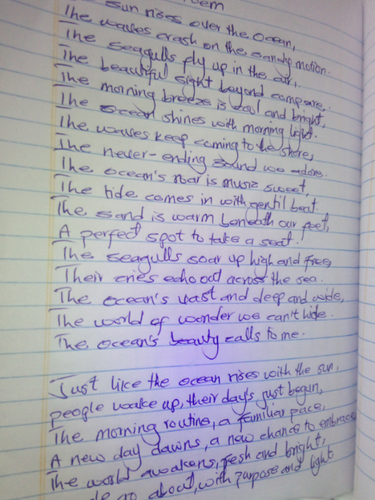 sun rises over the ocean,
The waves crash on the sandy motion.
The seagulls fly up in the air,
The beautiful sight beyond compare.
The morning breeze is cool and bright,
The ocean shines with morning light.
The waves keep coming to the shore,
The never-ending sound we adore.
The ocean's roar is music sweet,
The tide comes in with gentil beat.
The sand is warm beneath our feet,
A perfect spot to take a seat.
The seagulls soar up high and free,
Their cries echo out across the sea.
The ocean's vast and deep and wide,
The world of wonder we can't hide.
The ocean's beauty calls to me.
Just like the ocean rises with the sun,
people wake up, their days just begun,
The morning routine, a familiar pace,
A new day dawns, a new chance to embrace
The world awakens, fresh and bright,
go about, with purpose and light